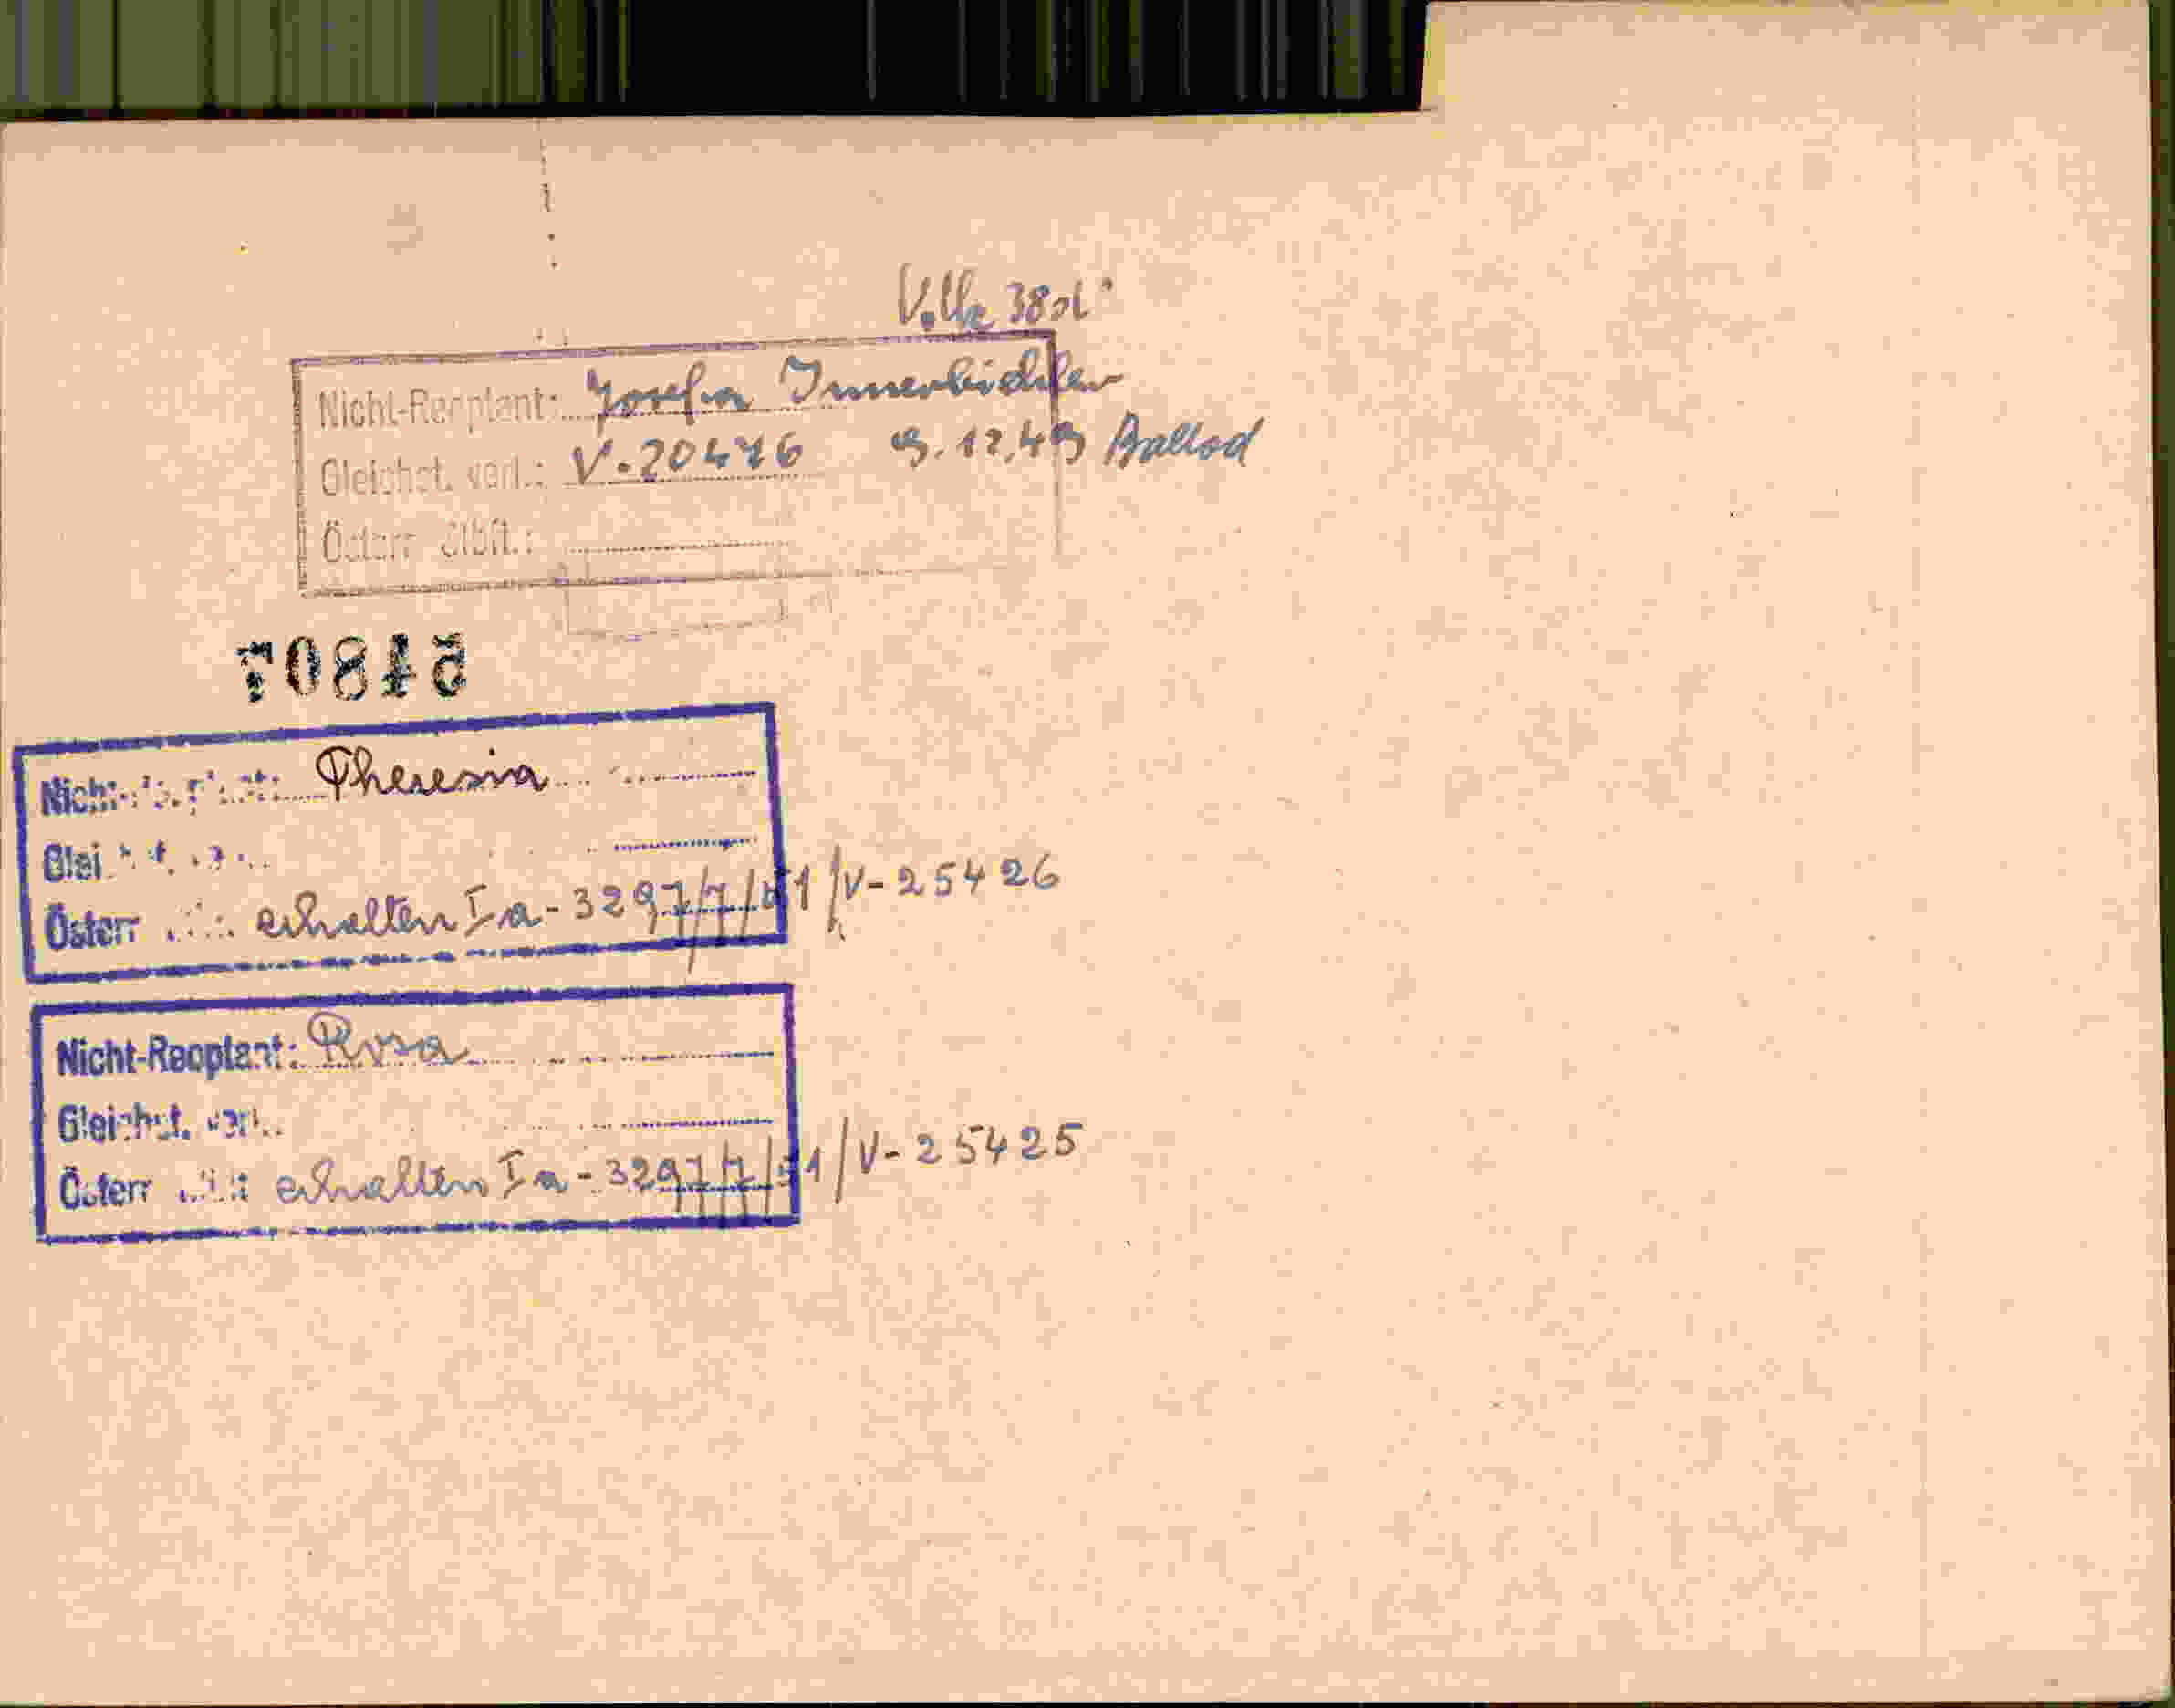 Nicht-Reoplant: Josefa Innerbichler
Gleichst. verl.: V-20476 9.12.49 Ballod
Österr
70845
Theresia
Österr erhalten Ia-3297/7/51/V-25426
Nicht-Reoplant: Rosa
Gleichst. verl.
Österr erhalten Ia-3297/7/51/V-25425